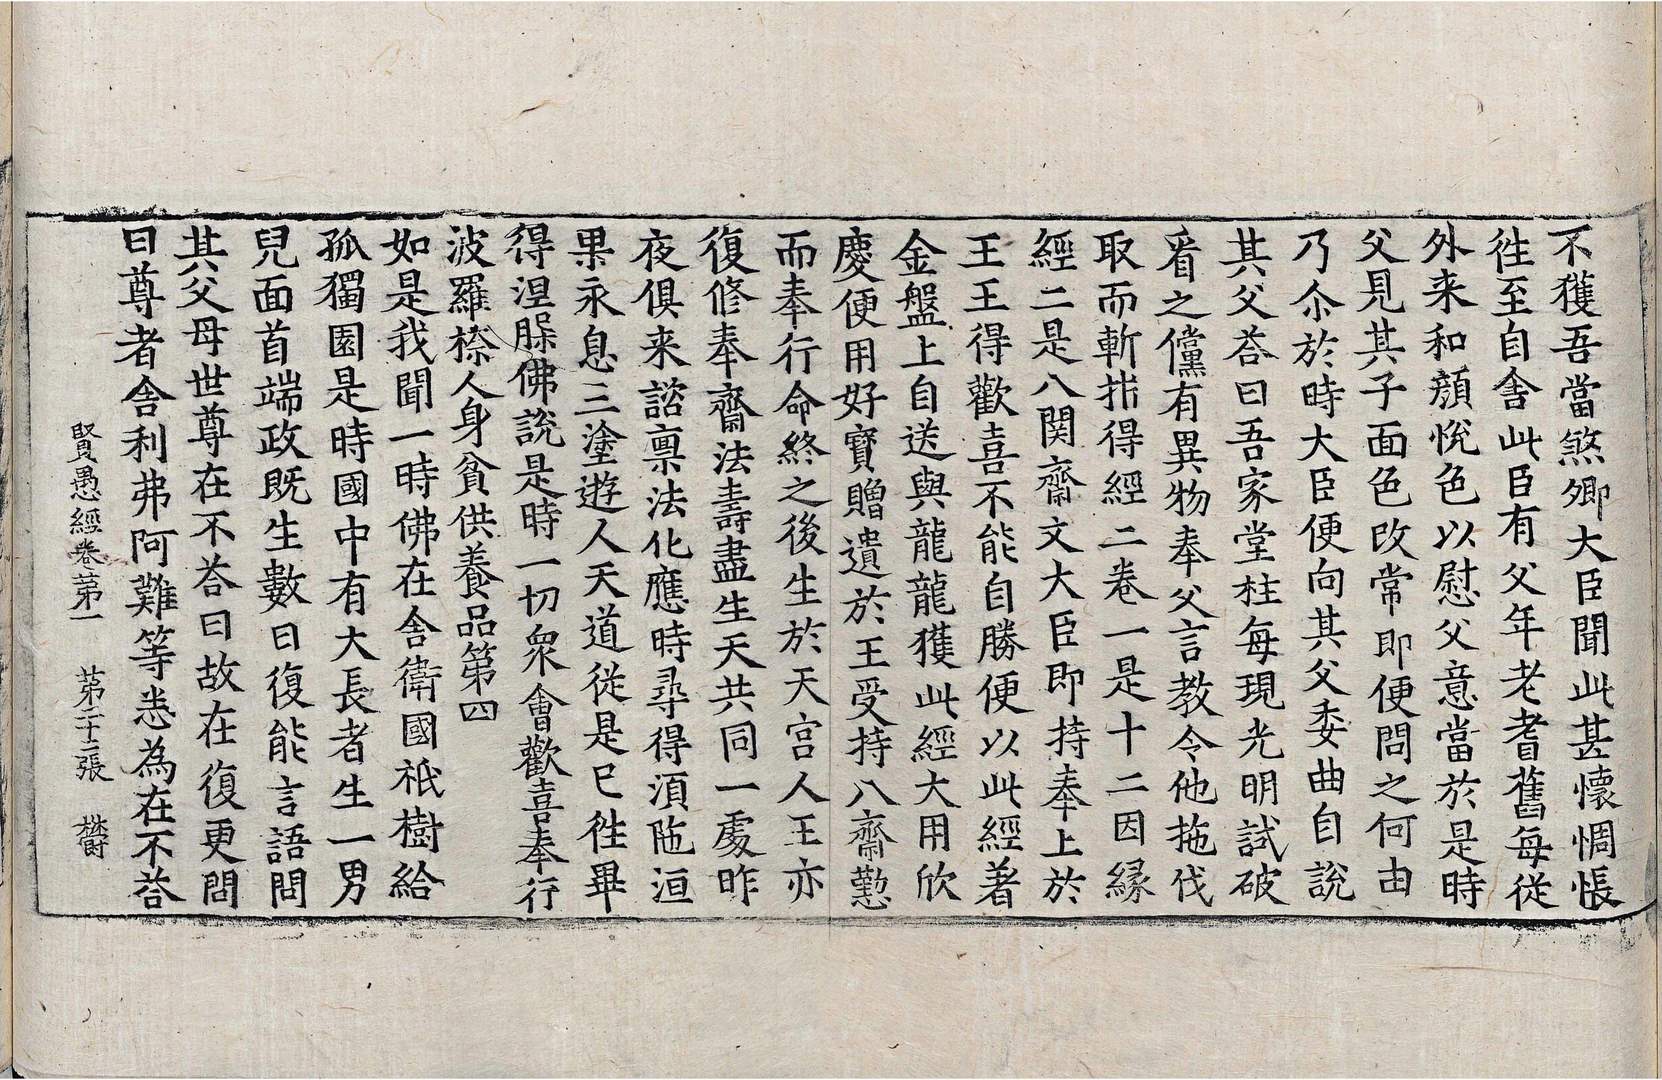 不獲吾當煞卿大臣聞此甚懷惆悵
往至自舍此臣有父年老耆舊每從
外来和顔恱色以慰父意當於是時
父見其子面色改常即便問之何由
乃尒於時大臣便向其父委曲自說
其父荅曰吾家堂柱每現光明試破
看之儻有異物奉父言教令他拖伐
取而斬㧊得經二卷一是十二因縁
經二是八関齋文大臣即持奉上於
王王得歡喜不能自勝便以此經著
金盤上自送與龍龍獲此經大用欣
慶便用好寶贈遺於王受持八齋懃
而奉行命終之後生於天宫人王亦
復修奉齋法壽盡生天共同一處昨
夜俱来諮禀法化應時尋得湏陁洹
果永息三塗遊人天道從是已徃畢
得涅槃佛說是時一切衆會歡喜奉行
波羅㮈人身貧供養品第四
如是我聞一時佛在舍衛國祇樹給
孤獨園是時國中有大長者生一男
兒面首端政既生數日復能言語問
其父母世尊在不荅曰故在復更問
曰尊者舍利弗阿難等悉為在不荅
賢愚經卷苐一 苐二十二張 欝